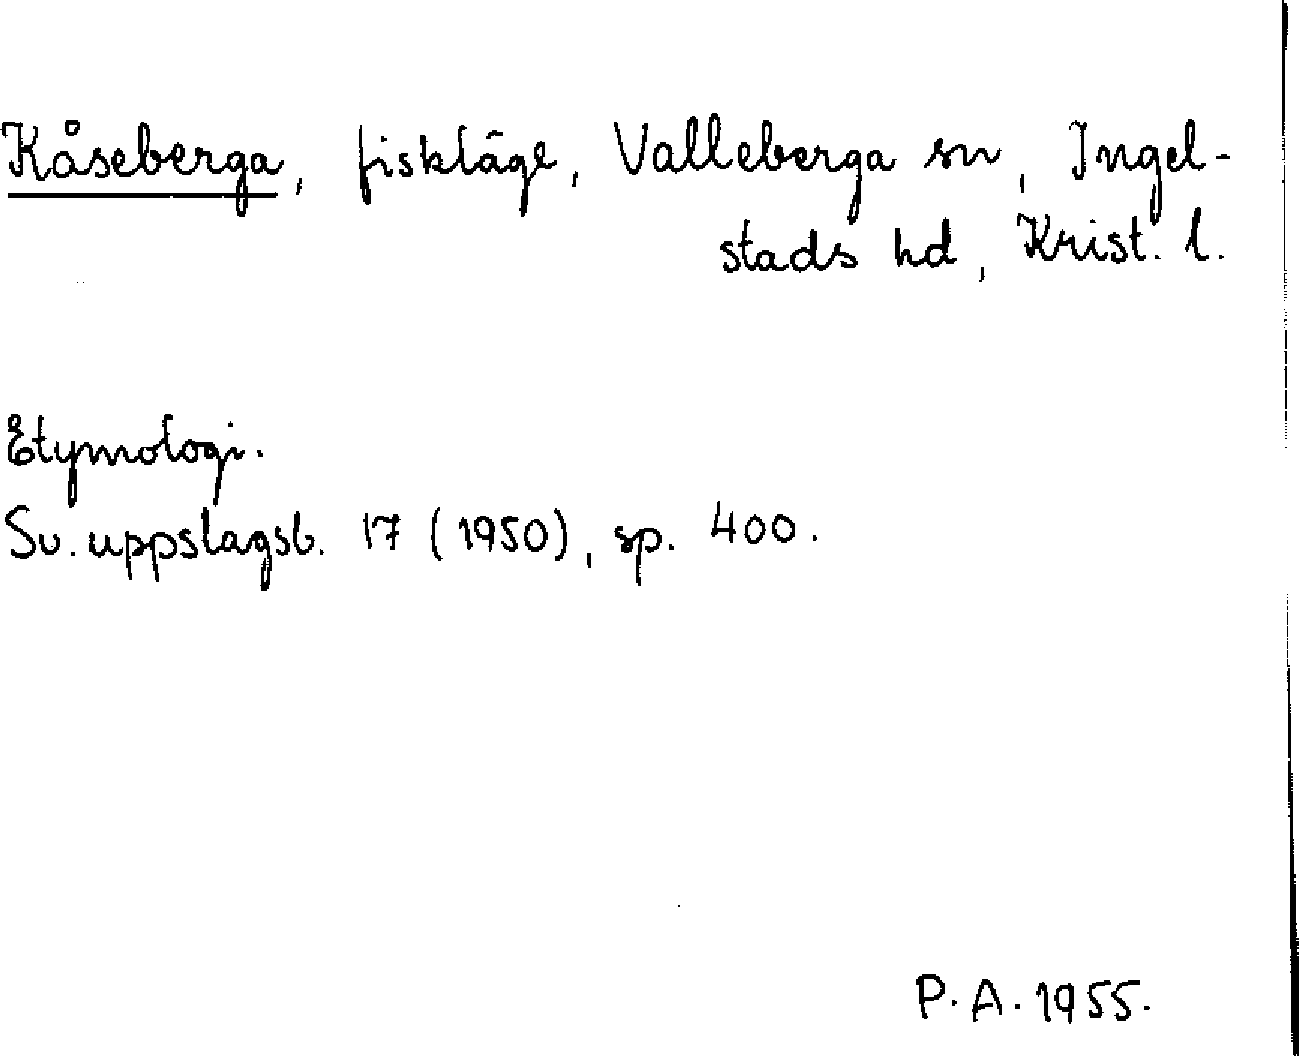 Kåseberga, fiskläge, Valleberga sn, Ingel-
stads hd, Krist. l.
Etymologi.
Sv. uppslagsb. 17 (1950), sp. 400.
P. A. 1955.